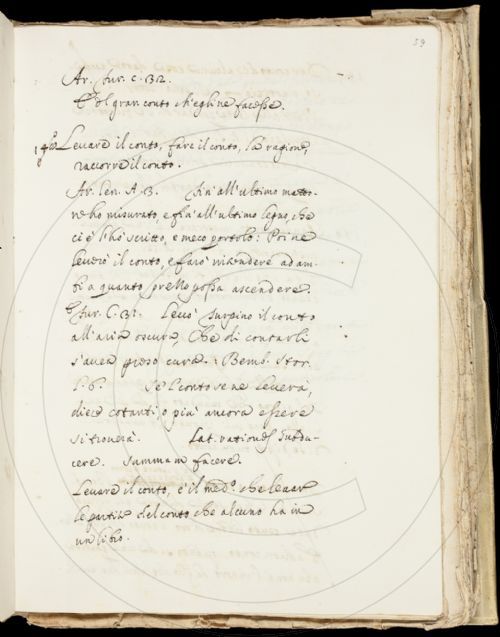 59
Ar. fur. c. 32.
E 'l gran conto ch'egli ne facesse.
Levare il conto, fare il conto, la ragione,
raccorre il conto.
Ar. Len. A. 3. Fin all'ultimo matto-
ne ho misurato, e fin all'ultimo legno, che
ci è l'hò scritto, e meco portolo: Poi ne
leverò il conto, e farò intendere ad am-
bi a quanto prezzo possa ascendere.
fur. C. 31. Levò Turpino il conto
all'aria oscura, Che di contarli
s'avea preso cura. Bemb. Stor.
l. 6. Se 'l conto se ne leverà,
diece cotanti, o più ancora essere
si troverà. Lat. rationes Subdu-
cere. summam facere.
Levare il conto, è il med.º che levar
le partite del conto che alcuno ha in
un libro.